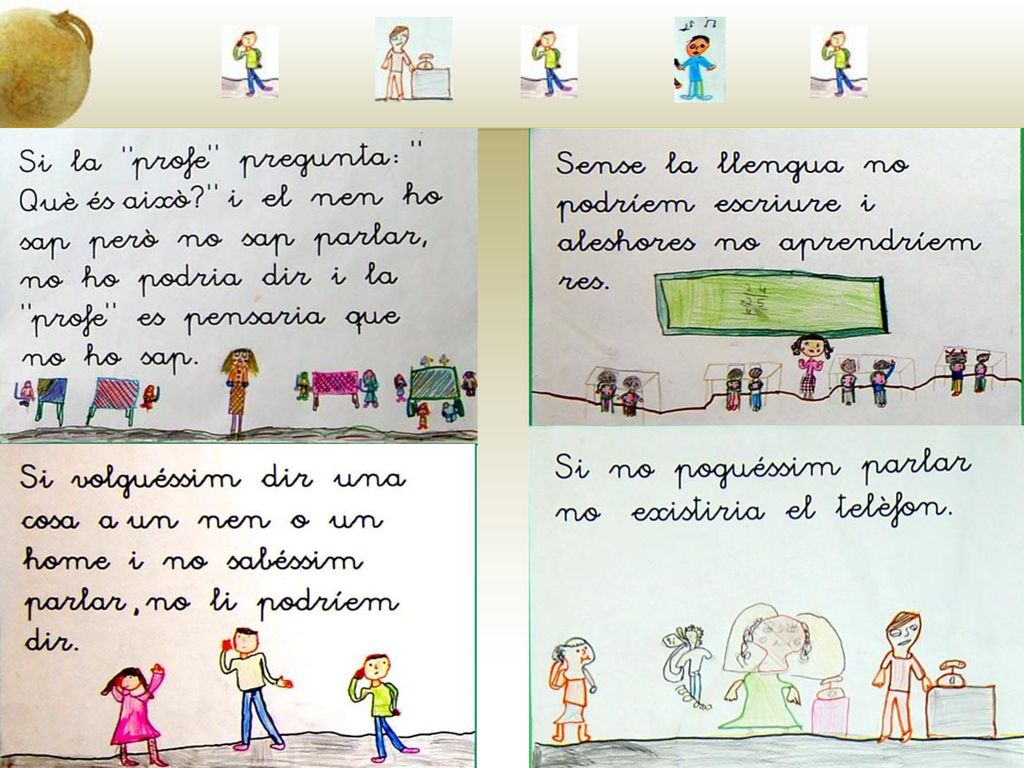 Si la "profe" pregunta: "
Què és això?" i el nen ho
sap però no sap parlar,
no ho podria dir i la
"profe" es pensaria que
no ho sap.
Sense la llengua no
podríem escriure i
aleshores no aprendríem
res.
Si volguéssim dir una
cosa a un nen o un
home i no sabéssim
parlar, no li podríem
dir.
Si no poguéssim parlar
no existiria el telèfon.